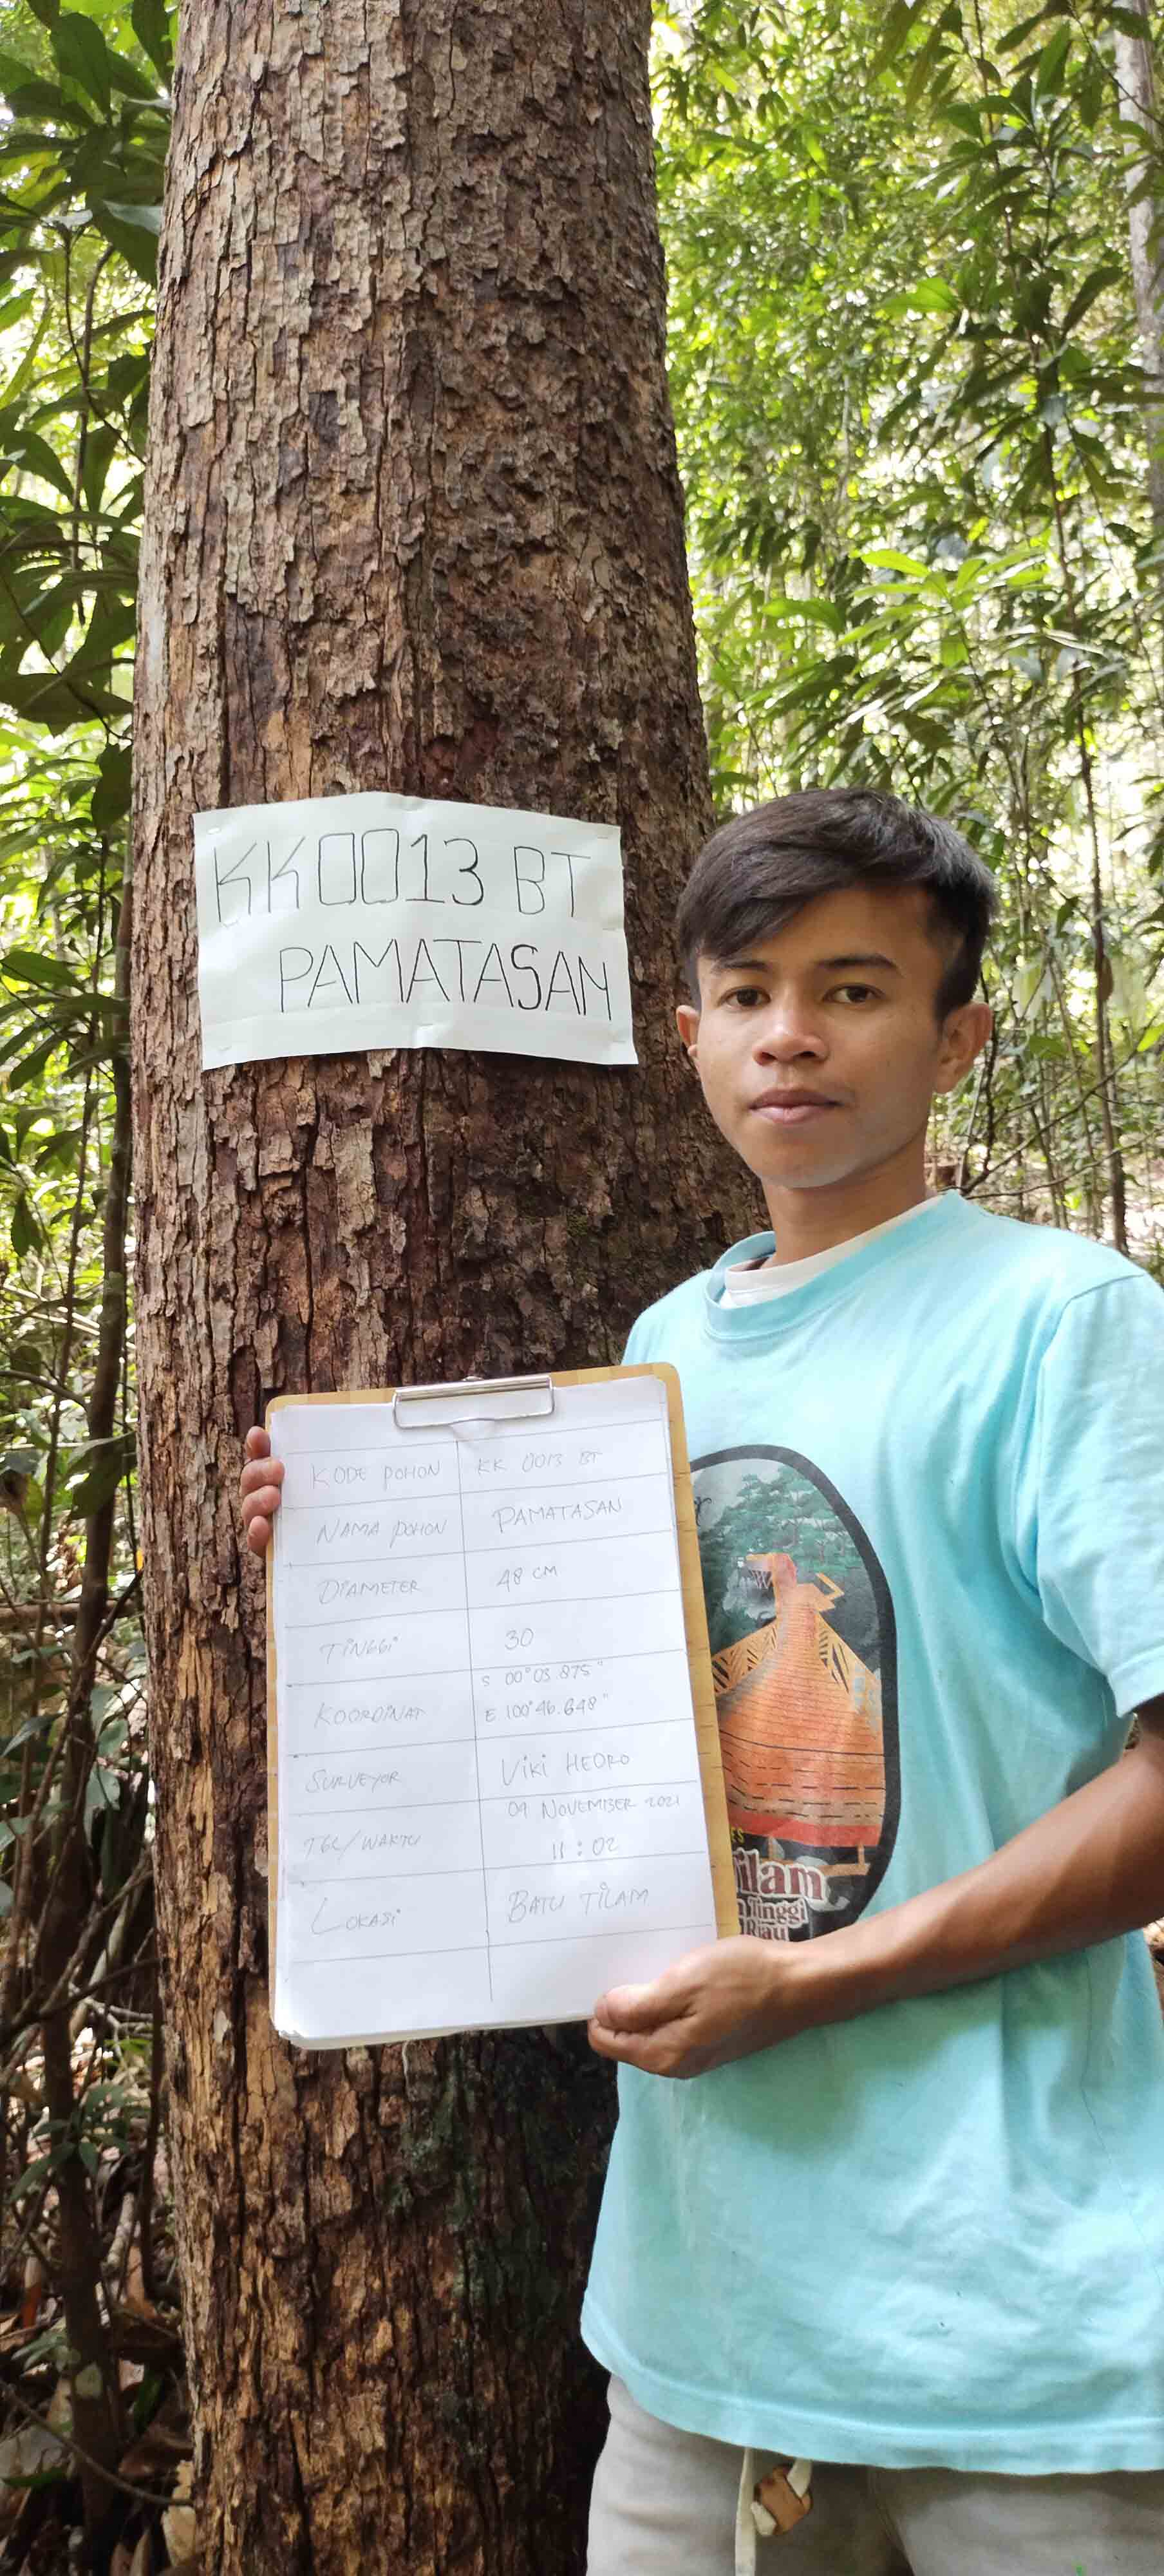 KK0013 BT
PAMATASAN
KODE POHON KK 0013 BT
NAMA POHON PAMATASAN
DIAMETER 48 CM
TINGGI 30
KOORDINAT S 00°03.875"
E 100°46.648"
SURVEYOR VIKI HEDRO
TGL/WAKTU 09 NOVEMBER 2021
11:02
LOKASI BATU TILAM
ilam
Tinggi
Riau